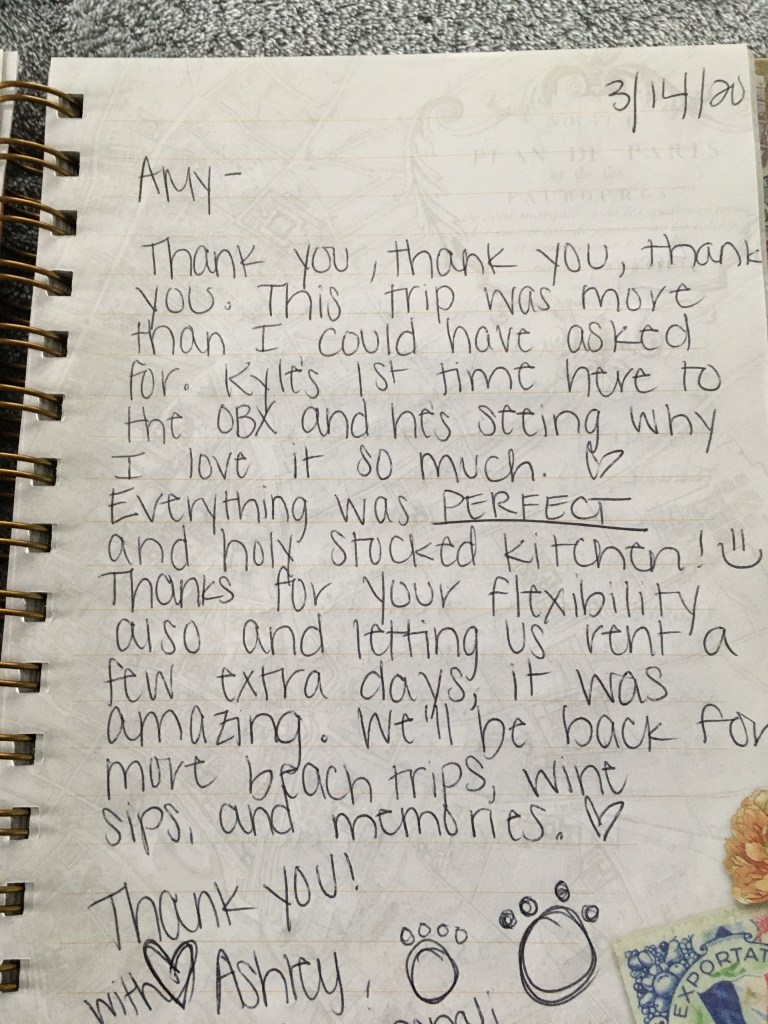 3/14/20
PLAN DE PARIS
FAUBOURGS
AMY-
Thank you, thank you, thank
you. This trip was more
than I could have asked
for. Kyle's 1st time here to
the OBX and he's seeing why
I love it so much. ♡
Everything was PERFECT
and holy stocked kitchen! :)
Thanks for your flexibility
also and letting us rent a
few extra days, it was
amazing. We'll be back for
more beach trips, wine
sips, and memories. ♡
Thank you!
with ♡ Ashley,
EXPORTAT